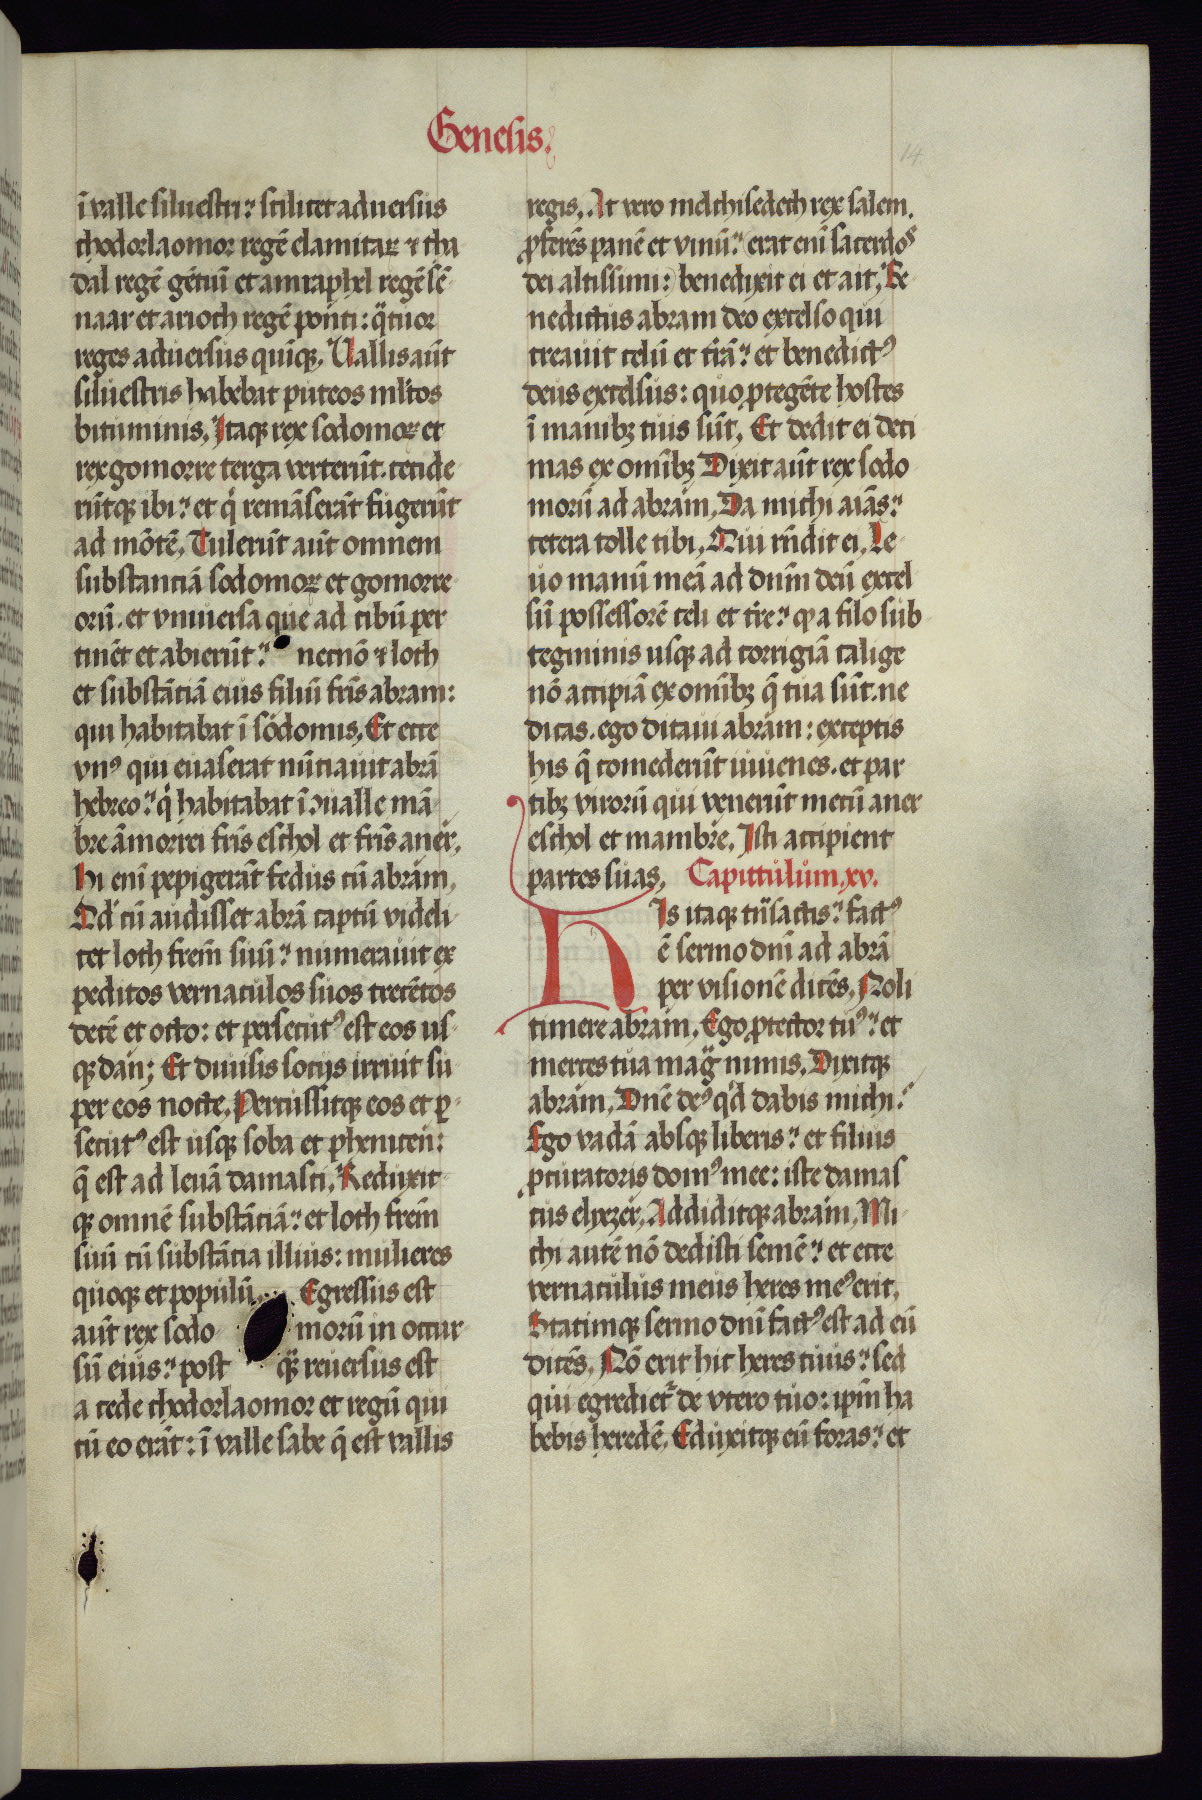 Genesis.
14
ī valle siluestri: scilicet aduersus
chodorlaomor regē elamitaꝝ ⁊ tha
dal regē gētiū et amraphel regē sē
naar et arioch regē ponti: q̈tuor
reges aduersus quīqꝫ. Uallis aūt
siluestris habebat puteos ml̄tos
bituminis. Itaqꝫ rex sodomoꝝ et
rex gomorre terga verterūt. cecide
rūtqꝫ ibi: et q̇ remāserāt fugerūt
ad mōtē. Tulerūt aūt omnem
substanciā sodomoꝝ et gomorre
orū. et vniuersa que ad cibū per
tinēt et abierūt: necnō ⁊ loth
et substāciā eius filiū frīs abram:
qui habitabat ī sodomis. Et ecce
vnꝰ qui euaserat nūciauit abrā
hebreo: q̇ habitabat ī ꝯualle mā
bre āmorrei frīs eschol et frīs aner.
Hi enī pepigerāt fedus cū abram.
Qd' cū audisset abrā captū videli
cet loth frem̄ suū: numerauit ex
peditos vernaculos suos trecētos
decē et octo: et persecutꝰ est eos us
qꝫ dan; Et diuisis socijs irruit su
per eos nocte. Percussitqꝫ eos et ꝑ
secutꝰ est usqꝫ soba et phenicen:
q̄ est ad leuā damasci. Reduxit
qꝫ omnē substāciā: et loth frem̄
suū cū substācia illius: mulieres
quoqꝫ et populū. Egressus est
aūt rex sodo morū in occur
sū eius: post q̄ꝫ reuersus est
a cede chodorlaomor et regū qui
cū eo erāt: ī valle sabe q̄ est vallis
regis. At vero melchisedech rex salem.
ꝓferēs panē et vinū: erat enī sacerdos
dei altissimi:) benedixit ei et ait. Be
nedictus abram deo excelso qui
creauit celū et trā: et benedictꝰ
deus excelsus: quo ꝓtegēte hostes
ī manibꝫ tuis sūt. Et dedit ei deci
mas ex omībꝫ Dixit aūt rex sodo
morū ad abram. Da michi aīas:
cetera tolle tibi. Qui rn̄dit ei. Le
uo manū meā ad dnm̄ deū excel
sū possessorē celi et tre: ꝙ a filo sub
tegminis usqꝫ ad corrigiā calige
nō accipiā ex omībꝫ q̄ tua sūt. ne
dicas. ego ditaui abram: exceptis
his q̄ comederūt iuuenes. et par
tibꝫ virorū qui venerūt mecū aner
eschol et mambre. Isti accipient
partes suas. Capittulum. xv.
His itaqꝫ trāsactis: factꝰ
ē sermo dnī ad abrā
per visionē dicēs. Noli
timere abram. Ego ꝓtector tuꝰ: et
merces tua mag̈ nimis. Dixitqꝫ
abram. Dnē deꝰ qd̓ dabis michi?
Ego vadā absqꝫ liberis: et filius
ꝓcuratoris domꝰ mee: iste damas
cus elyezer. Addiditqꝫ abram. Mi
chi autē nō dedisti semē: et ecce
vernaculus meus heres meꝰ erit.
Statimqꝫ sermo dnī factꝰ est ad eū
dicēs. Nō erit hic heres tuus: sed
qui egrediet᷑ de vtero tuo: ipm̄ ha
bebis heredē. Eduxitqꝫ eū foras: et